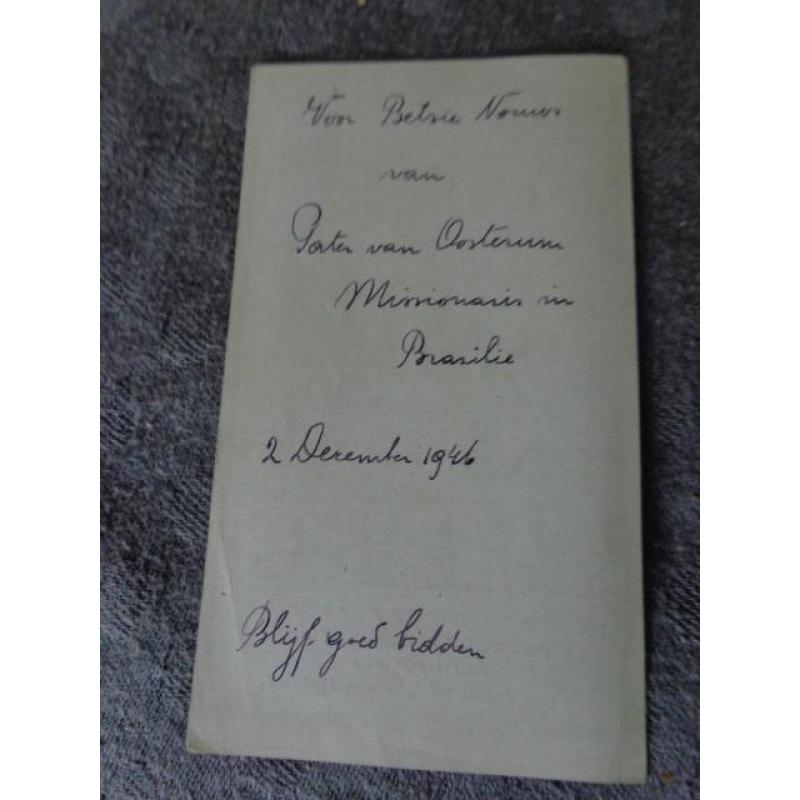 Voor Betsie Nouws
van
Pater van Oosterum
Missionaris in
Brasilie
2 December 1946
Blijf goed bidden